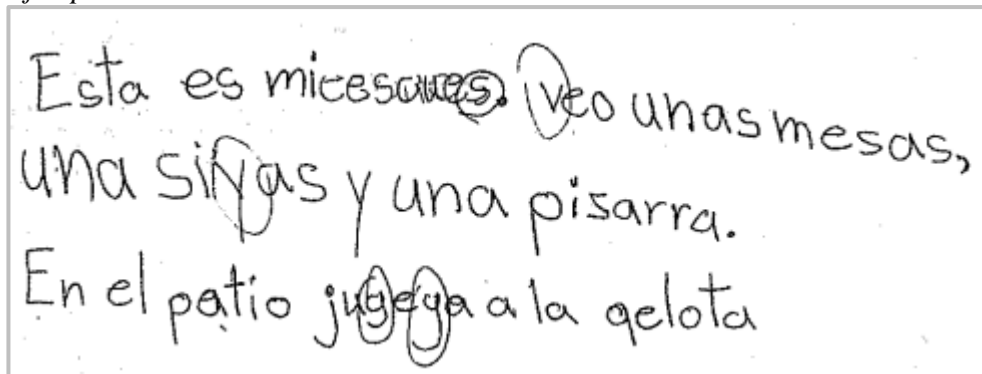 Esta es micescues. veo unas mesas,
una siyas y una pisarra.
En el patio jugega a la qelota